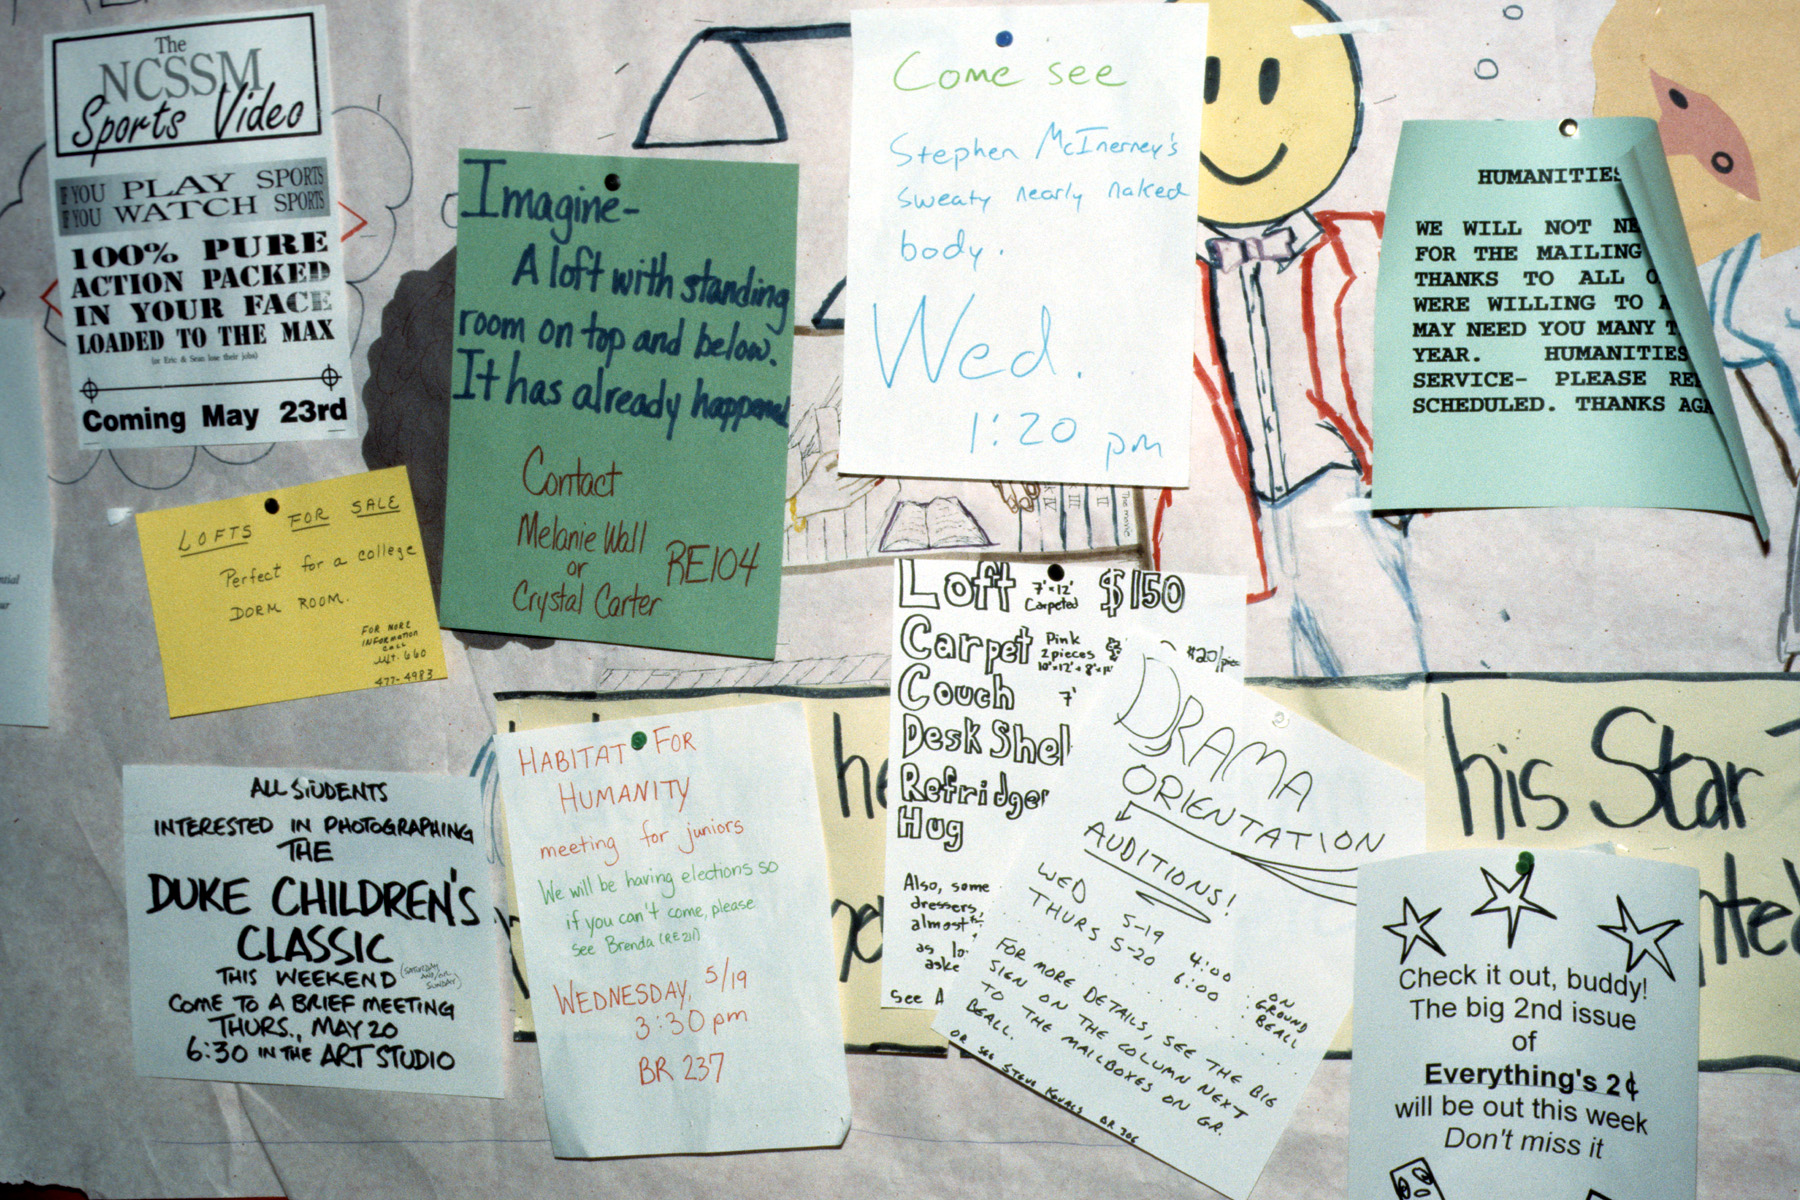 The
NCSSM
Sports Video
IF YOU PLAY SPORTS
IF YOU WATCH SPORTS
100% PURE
ACTION PACKED
IN YOUR FACE
LOADED TO THE MAX
(or Eric & Sean lose their jobs)
Coming May 23rd
Imagine-
A loft with standing
room on top and below.
It has already happened
Contact
Melanie Wall
or
Crystal Carter
RE104
Come see
Stephen McInerney's
sweaty nearly naked
body.
Wed.
1:20 pm
HUMANITIES
WE WILL NOT
FOR THE MAILING
THANKS TO ALL
WERE WILLING TO
MAY NEED YOU MANY
YEAR. HUMANITIES
SERVICE- PLEASE
SCHEDULED. THANKS
LOFTS FOR SALE
Perfect for a college
DORM ROOM.
FOR MORE
INFORMATION
CALL
660
477-4983
Loft 7'x12' Carpeted $150
Carpet Pink
2 pieces
$20/piece
Couch 7'
Desk Shel
Refridger
Hug
Also, some
dressers,
almost
as lo
aske
see A
DRAMA
ORIENTATION
AUDITIONS!
WED 5-19 4:00
THURS 5-20 6:00
ON
GROUND
BEALL
FOR MORE DETAILS, SEE THE BIG
SIGN ON THE COLUMN NEXT
TO THE MAILBOXES ON GR.
BEALL.
OR SEE STEVE KOVALS BR 306
HABITAT FOR
HUMANITY
meeting for juniors
We will be having elections so
if you can't come, please
see Brenda (RE211)
WEDNESDAY, 5/19
3:30 pm
BR 237
ALL STUDENTS
INTERESTED IN PHOTOGRAPHING
THE
DUKE CHILDREN'S
CLASSIC
THIS WEEKEND (SATURDAY AND/OR SUNDAY)
COME TO A BRIEF MEETING
THURS., MAY 20
6:30 IN THE ART STUDIO
his Star
Check it out, buddy!
The big 2nd issue
of
Everything's 2¢
will be out this week
Don't miss it